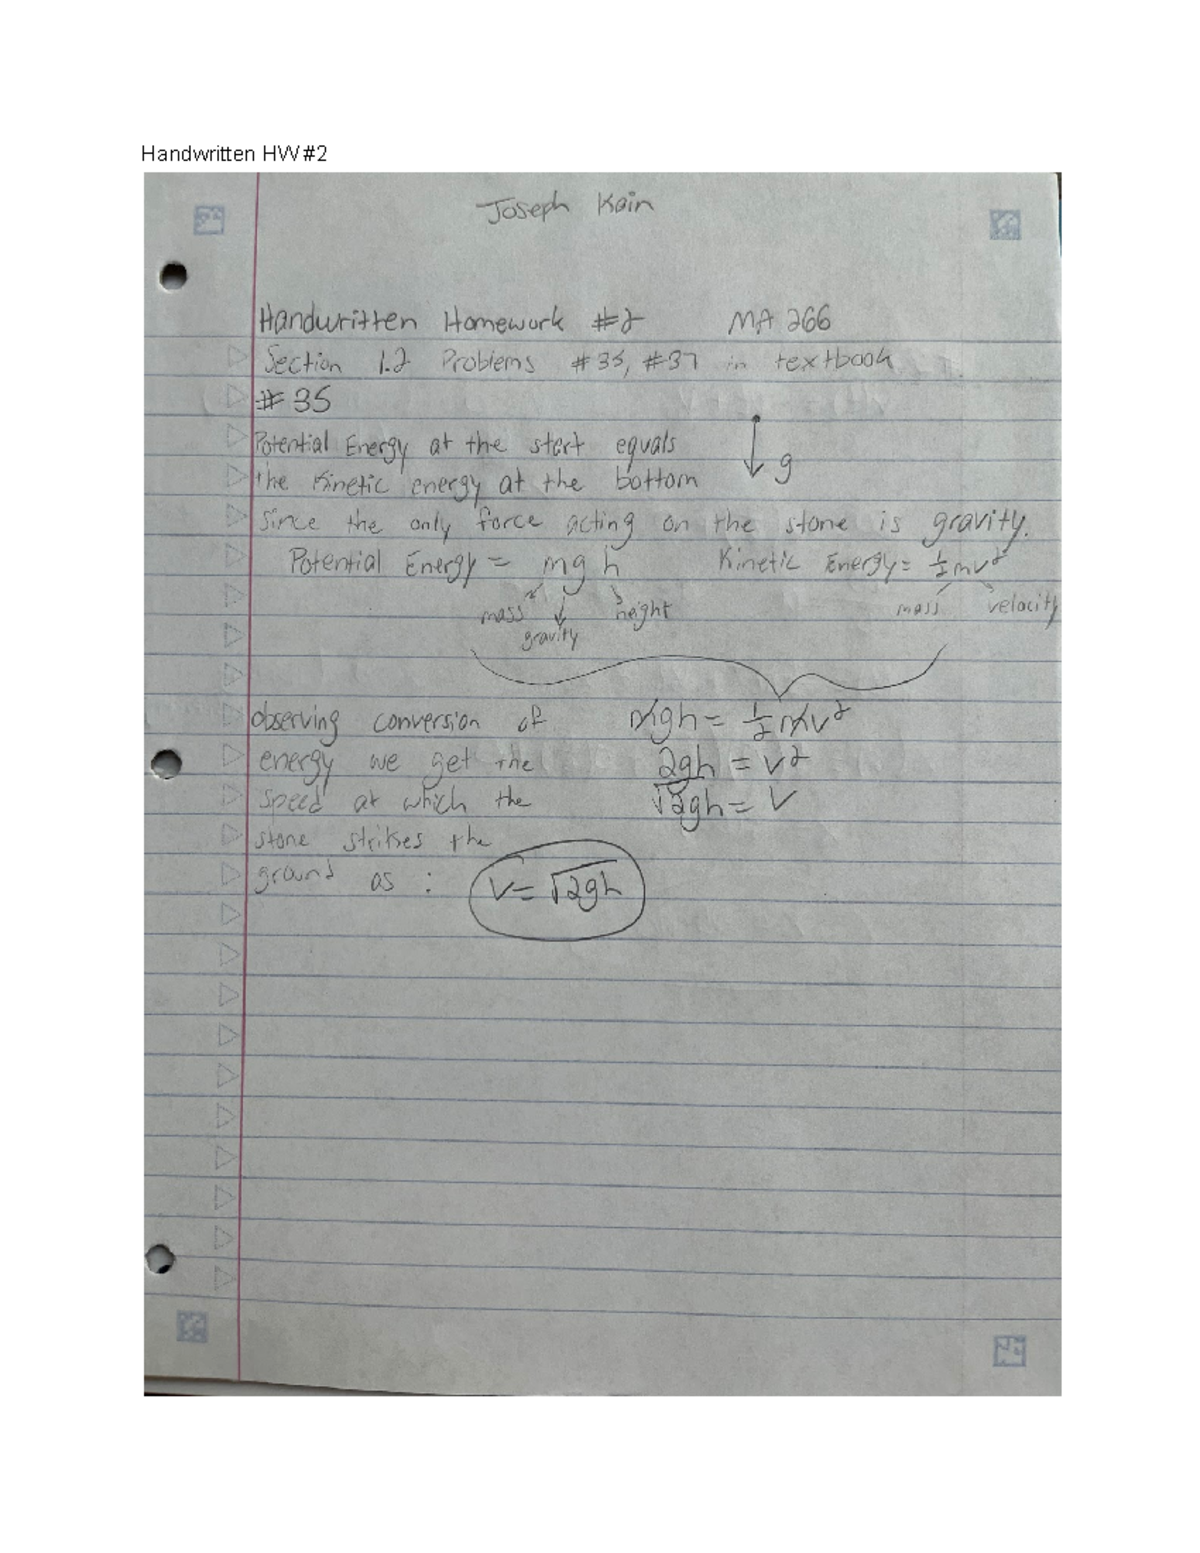 Handwritten HW #2
Joseph Kain
Handwritten Homework #2 MA 266
Section 1.2 Problems #35, #37 in textbook
# 35
Potential Energy at the start equals
the Kinetic energy at the bottom
g
Since the only force acting on the stone is gravity.
Potential Energy = mg h Kinetic Energy = ½mv²
mass height mass velocity
gravity
observing conversion of mgh = ½mv²
energy we get the 2gh = v²
speed at which the √2gh = V
stone strikes the
ground as : V = √2gh